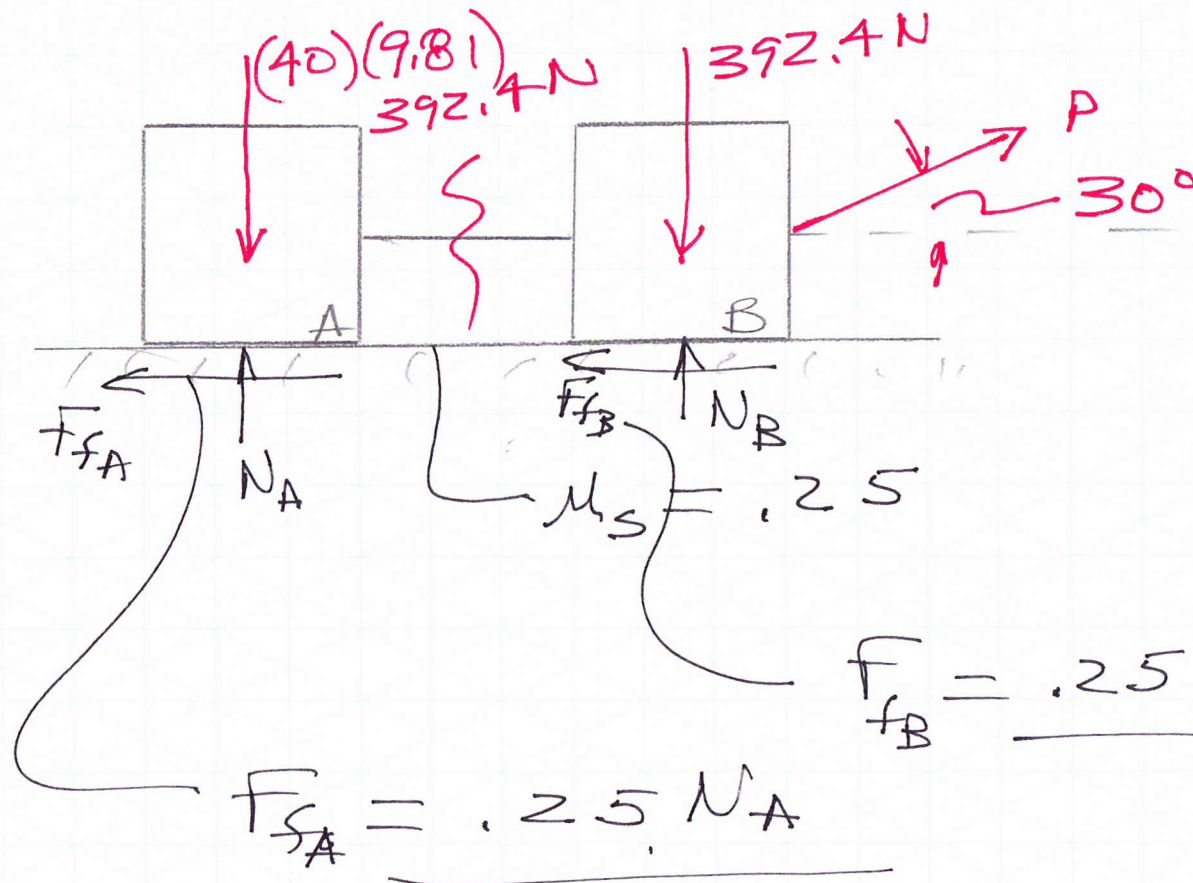 (40)(9.81)
392.4 N
392.4 N
P
30°
A
B
F_fA
N_A
F_fB
N_B
μ_s = .25
F_fB = .25
F_fA = .25 N_A